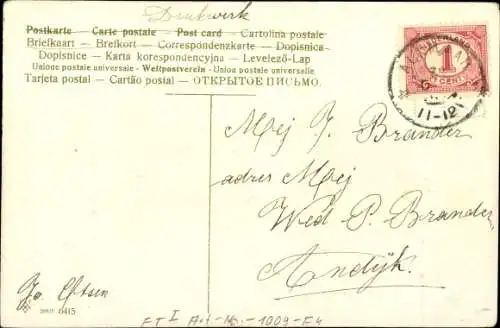 Drukwerk
Postkarte — Carte postale — Post card — Cartolina postale
Briefkaart — Brefkort — Correspondenzkarte — Dopisnica
Dopisnice — Karta korespondencyjna — Levelező-Lap
Unione postale universale — Weltpostverein — Union postale universelle
Tarjeta postal — Cartão postal — ОТКРЫТОЕ ПИСЬМО.
NEDERLAND
1
CENT
11-12
Mej J. Brander
adres Mej
Wed P. Brander
Andijk.
Jo. Otsen
6415
FT I Art-No-1009-F4